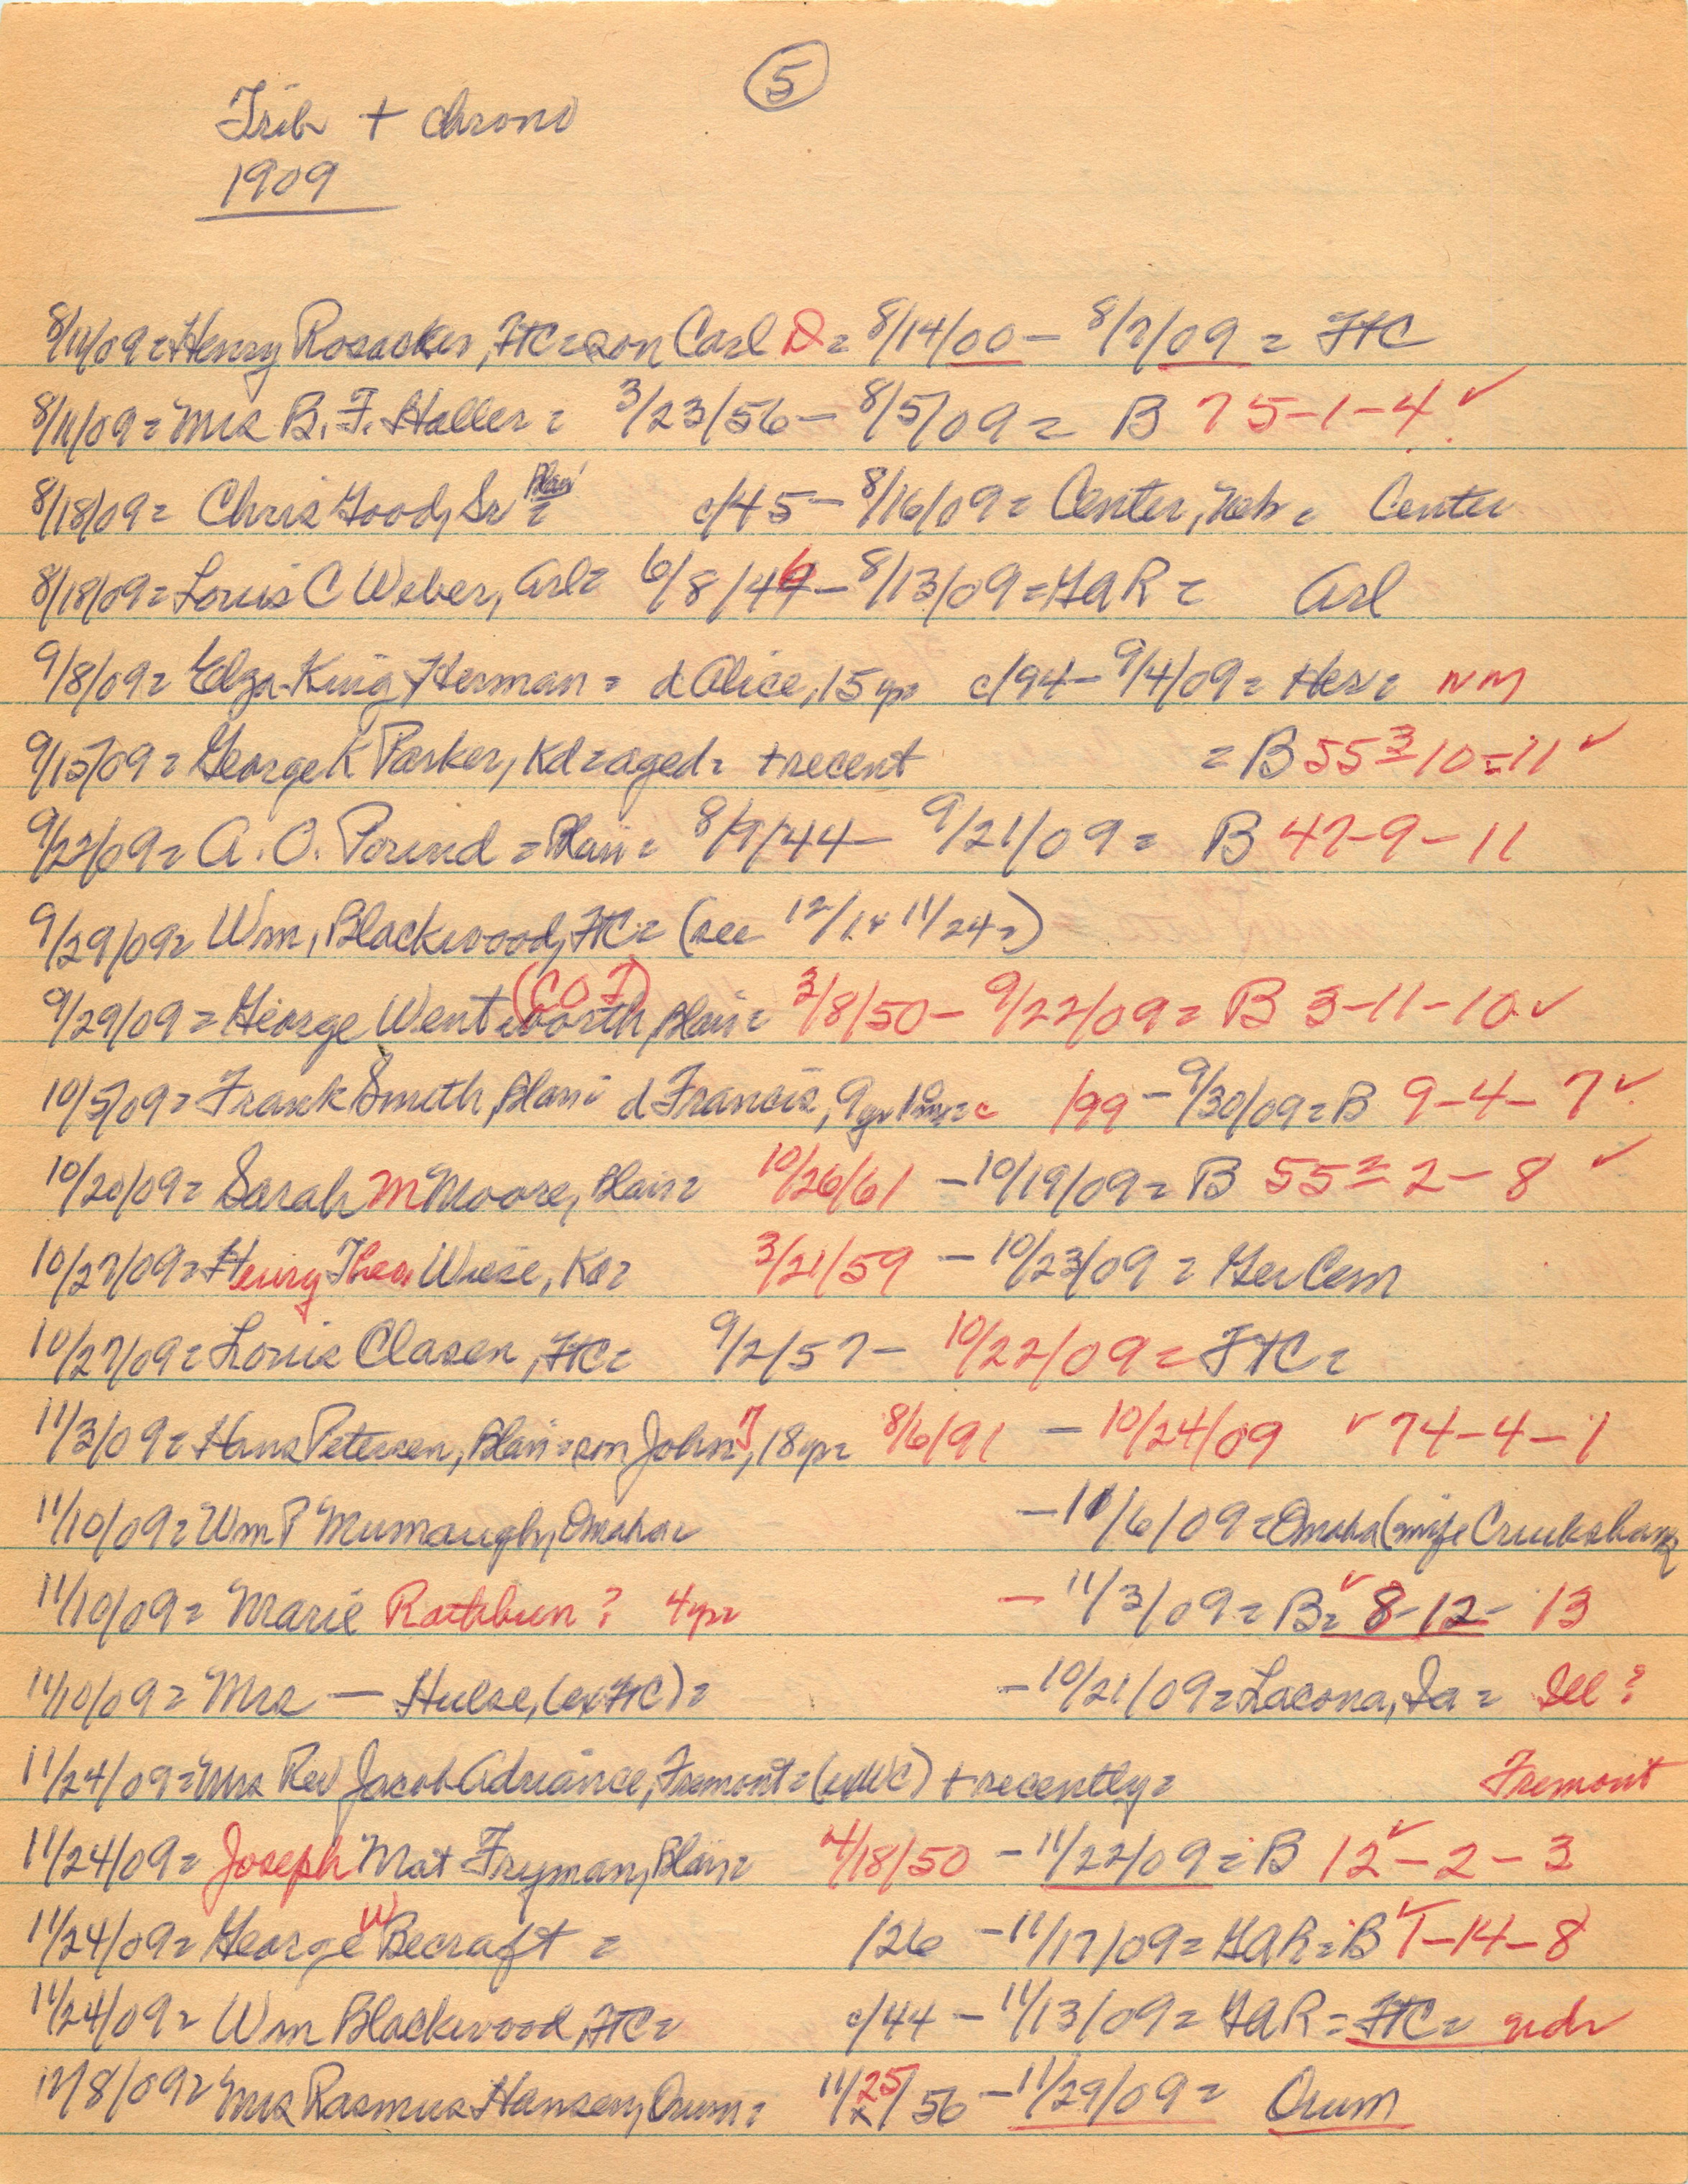 5
Trib + chrono
1909
8/11/09 = Henry Rosacker, FtC = son Carl D = 8/14/00 - 8/7/09 = FtC
8/11/09 = Mrs B. F. Haller = 3/23/56 - 8/5/09 = B 75-1-4 ✓
8/18/09 = Chris Good, Sr Blair = c/45 - 8/16/09 = Center, Neb = Center
8/18/09 = Louis C Weber, Arl = 6/8/46 - 8/13/09 = GAR = Arl
9/8/09 = Elza King Herman = d Alice, 15 yr c/94 - 9/4/09 = Her = NM
9/15/09 = George K Parker, Kd = aged = + recent = B 55=3-10-11 ✓
9/22/09 = A. O. Pound = Blair = 8/9/44 - 9/21/09 = B 47-9-11
9/29/09 = Wm. Blackwood, FtC = (see 12/1 + 11/24 =)
9/29/09 = George Wentworth, (COI) Blair = 3/8/50 - 9/22/09 = B 3-11-10 ✓
10/5/09 = Frank Smith, Blair = d Francis, 9 yr 10m = c /99 - 9/30/09 = B 9-4-7 ✓
10/20/09 = Sarah M Moore, Blair = 10/26/61 - 10/19/09 = B 55=2-2-8 ✓
10/27/09 = Henry Theo Wiese, Ka = 3/21/59 - 10/23/09 = Ger Cem
10/27/09 = Louis Clasen, FtC = 9/2/57 - 10/22/09 = FtC =
11/3/09 = Hans Petersen, Blair = son John J, 18 yr = 8/6/91 - 10/24/09 ✓ 74-4-1
11/10/09 = Wm P Mumaugh, Omaha = - 11/6/09 = Omaha (wife Cruikshank
11/10/09 = Marie Rathbun? 4 yr = - 11/3/09 = B = ✓ 8-12-13
11/10/09 = Mrs — Hulse, (ex FtC) = - 10/21/09 = Lacona, Ia = Ill?
11/24/09 = Mrs Rev Jacob Adriance, Fremont = (exWC) + recently = Fremont
11/24/09 = Joseph Mat Fryman, Blair = 4/18/50 - 11/22/09 = B 12-2-3 ✓
11/24/09 = George W Becraft = /26 - 11/17/09 = GAR = B ✓ 1-14-8
11/24/09 = Wm Blackwood, FtC = c/44 - 11/13/09 = GAR = FtC = ndr
12/8/09 = Mrs Rasmus Hansen, Orum = 11/25/56 - 11/29/09 = Orum